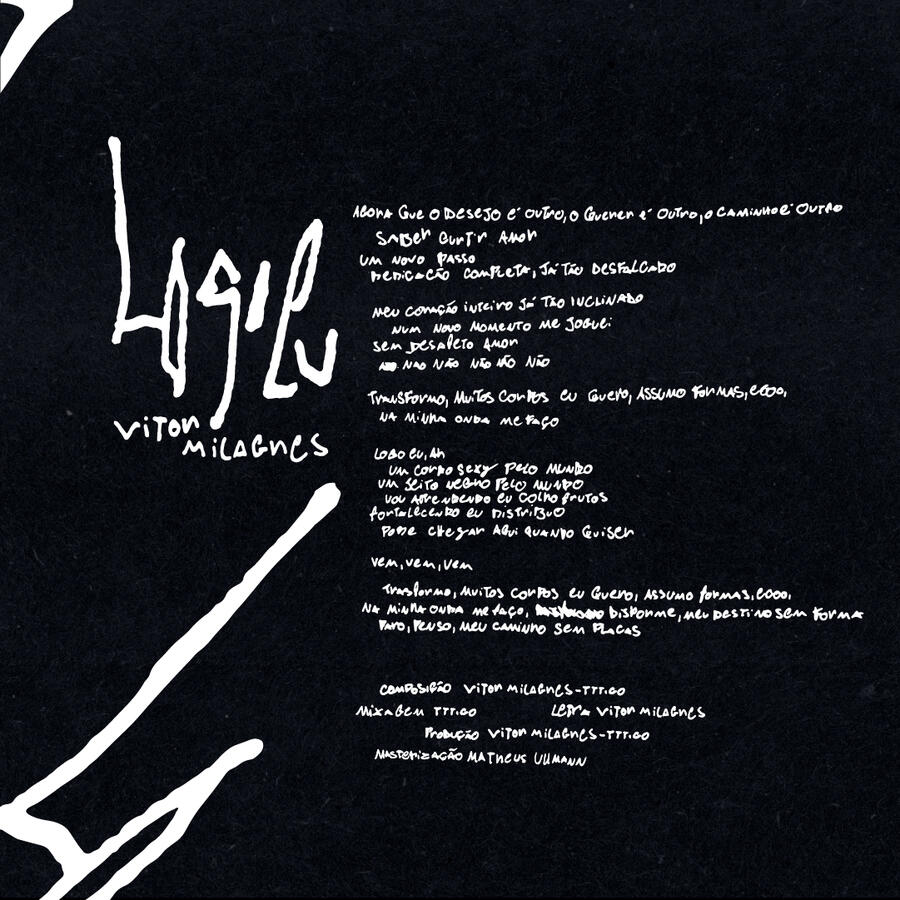 Vitor
Milagres
Agora que o desejo é outro, o querer é outro, o caminho é outro
Saber curtir amor
Um novo passo
Dedicação completa, já tão desfalcado
Meu coração inteiro já tão inclinado
Num novo momento me joguei
Sem desafeto amor
Não não não não não
Transformo, muitos corpos eu quero, assumo formas, ecoo,
Na minha onda me faço
Logo eu, ah
Um corpo sexy pelo mundo
Um jeito negro pelo mundo
Vou aprendendo eu colho frutos
Fortalecendo eu distribuo
Pode chegar aqui quando quiser
Vem, vem, vem
Trasformo, muitos corpos eu quero, assumo formas, ecoo,
Na minha onda me faço, disforme, meu destino sem forma
Paro, penso, meu caminho sem placas
Composição Vitor Milagres-TTT.GO
Mixagem TTT.GO Letra Vitor Milagres
Produção Vitor Milagres-TTT.GO
Masterização Matheus Ullmann